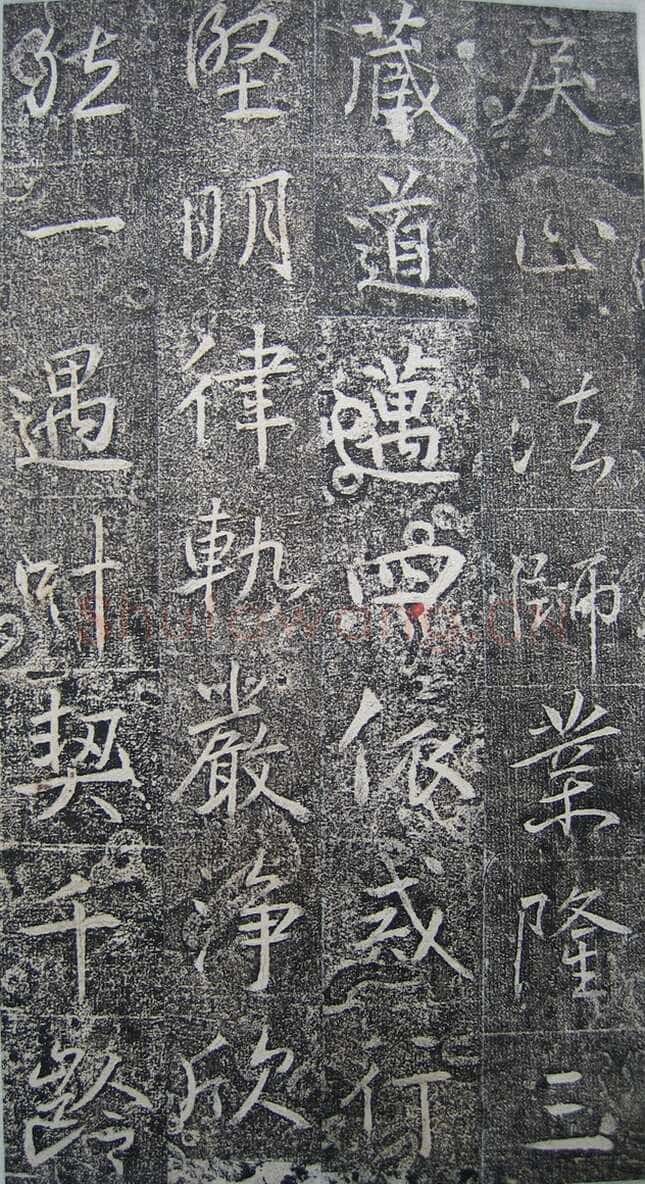 戾止法師業隆三
藏道邁四依戒行
堅明律軌嚴淨欣
然一遇叶契千齡